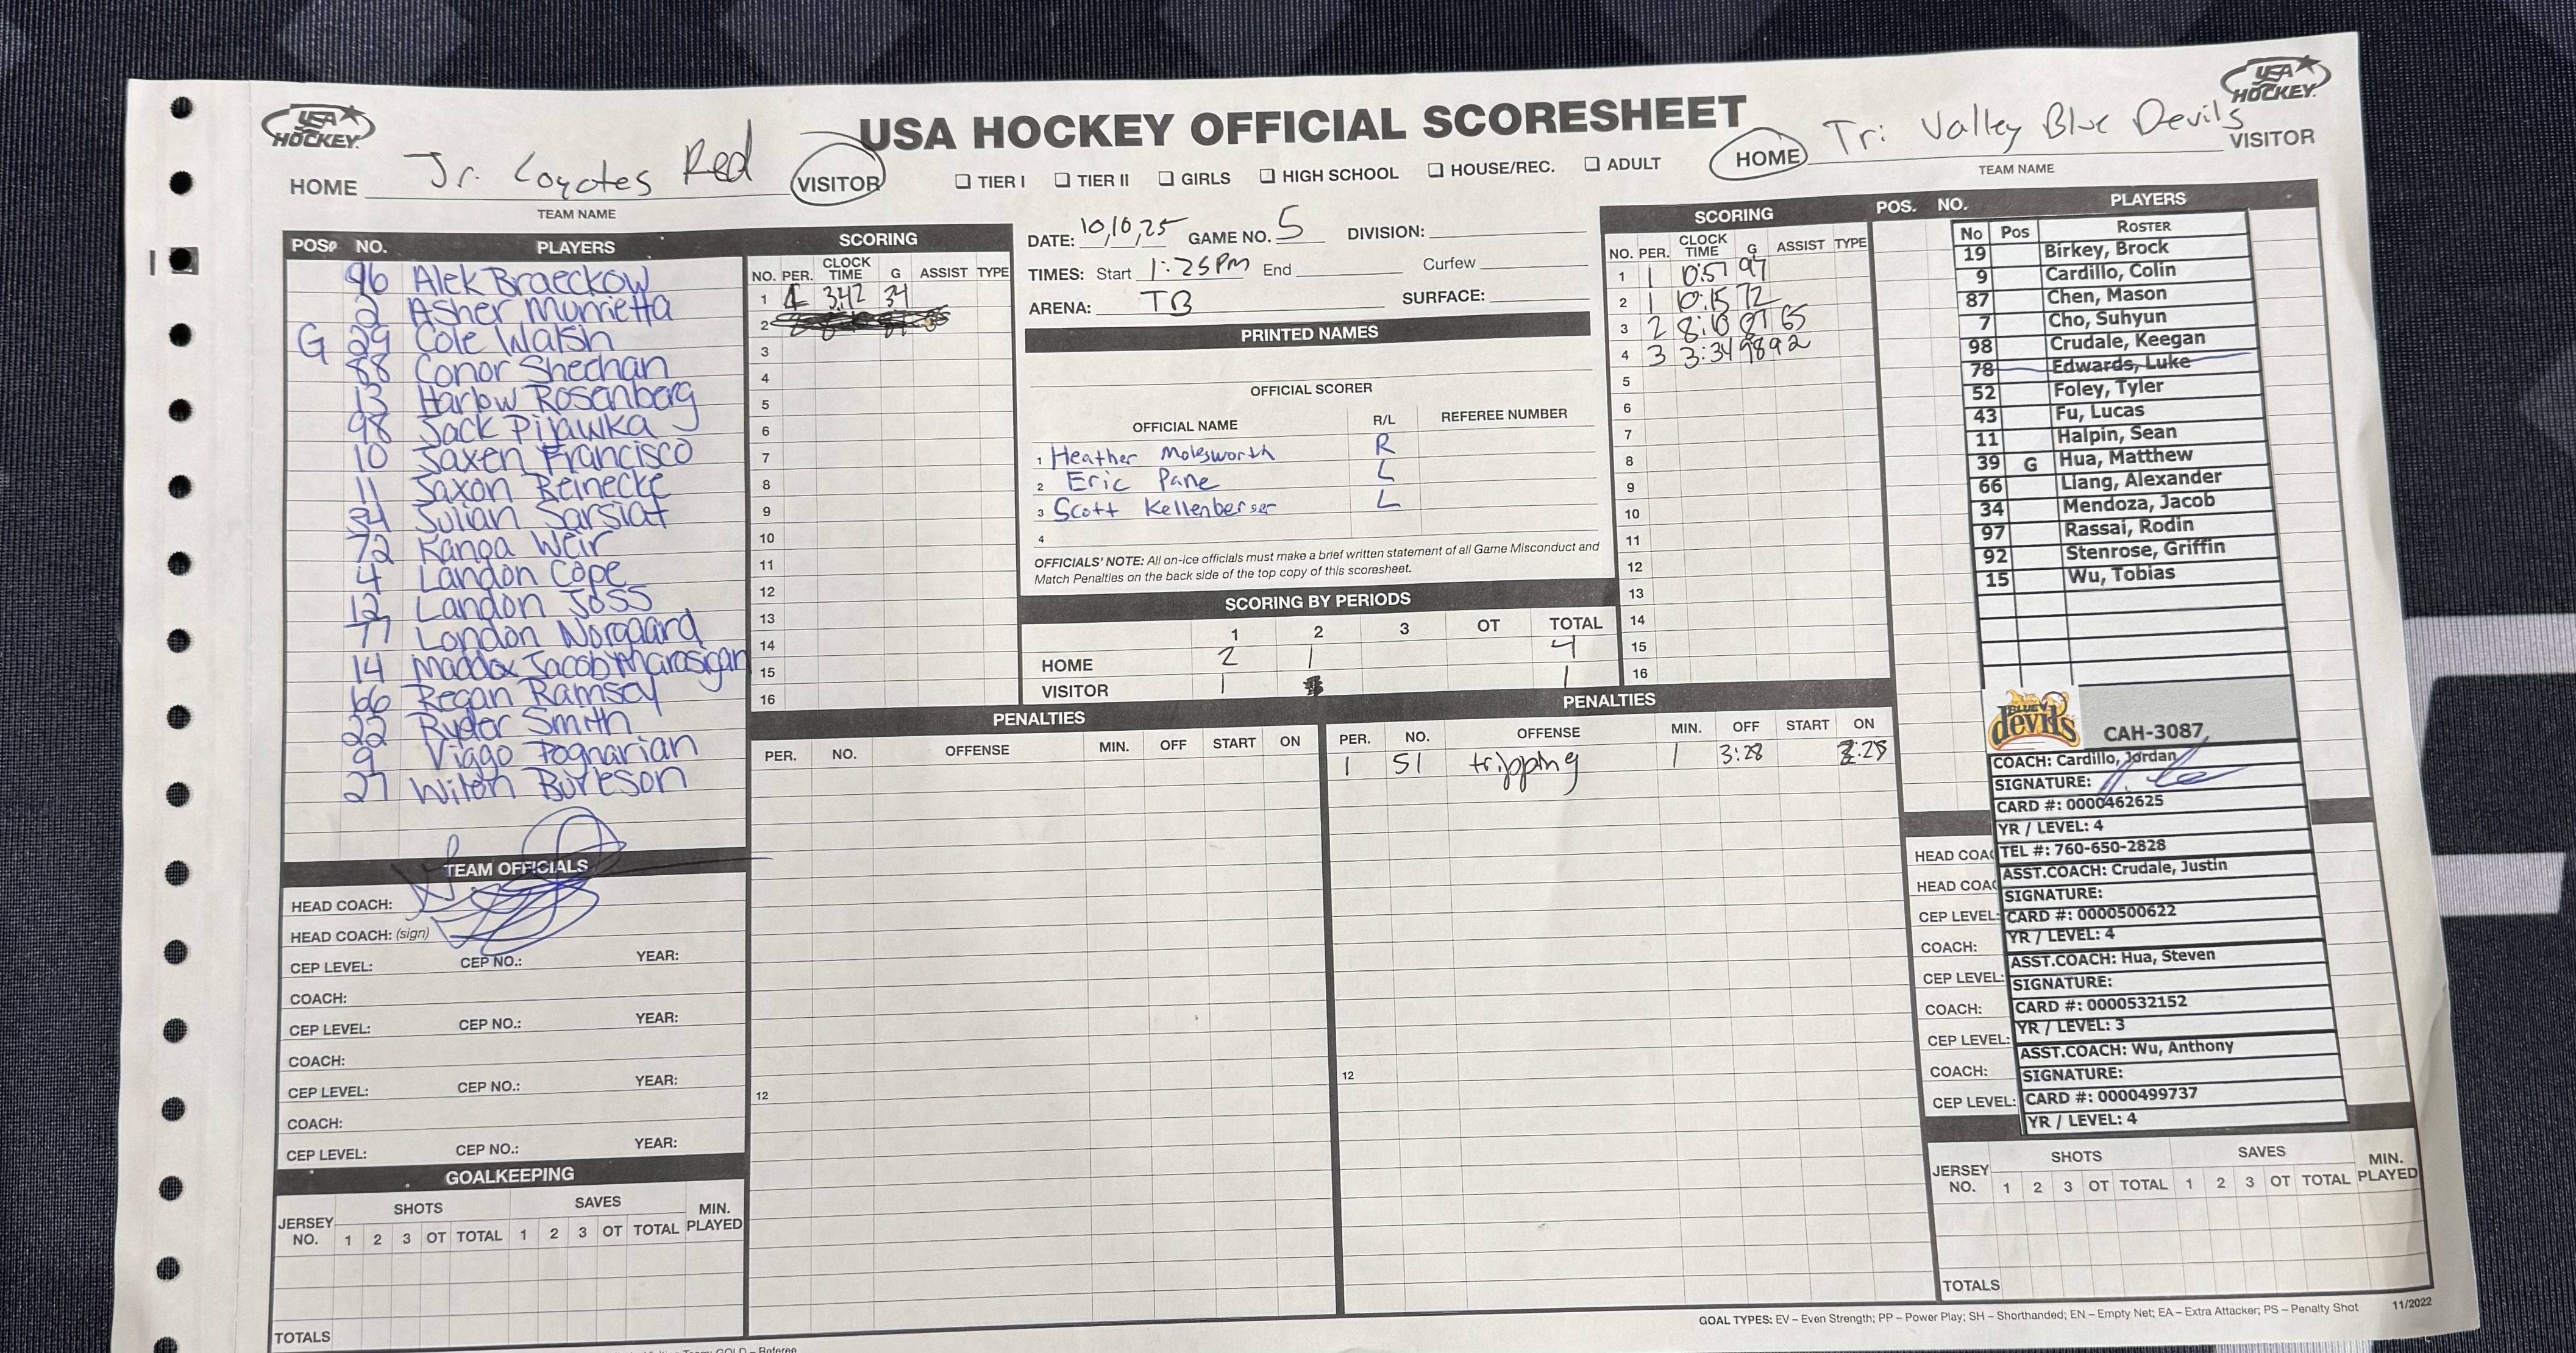 USA HOCKEY OFFICIAL SCORESHEET
USA HOCKEY
HOME Jr. Coyotes Red VISITOR
TEAM NAME
❑ TIER I ❑ TIER II ❑ GIRLS ❑ HIGH SCHOOL ❑ HOUSE/REC. ❑ ADULT
USA HOCKEY
HOME Tri Valley Blue Devils VISITOR
TEAM NAME
POS. NO. PLAYERS
96 Alek Braeckow
2 Asher Murrietta
G 29 Cole Walsh
88 Conor Sheehan
13 Harlow Rosenberg
98 Jack Pijawka
10 Jaxen Francisco
11 Jaxon Reinecke
34 Julian Sarsiat
72 Kanga Weir
4 Landon Cope
12 Landon Joss
77 London Norgaard
14 Maddox Jacob Marasigan
66 Regan Ramsey
22 Ryder Smith
9 Viggo Tognarian
27 Witen Burleson
TEAM OFFICIALS
HEAD COACH:
HEAD COACH: (sign)
CEP LEVEL: CEP NO.: YEAR:
COACH:
CEP LEVEL: CEP NO.: YEAR:
COACH:
CEP LEVEL: CEP NO.: YEAR:
COACH:
CEP LEVEL: CEP NO.: YEAR:
GOALKEEPING
SHOTS SAVES
JERSEY NO. 1 2 3 OT TOTAL 1 2 3 OT TOTAL MIN. PLAYED
TOTALS
SCORING
NO. PER. CLOCK TIME G ASSIST TYPE
1 1 3:42 34
2
3
4
5
6
7
8
9
10
11
12
13
14
15
16
DATE: 10,10,25 GAME NO. 5 DIVISION:
TIMES: Start 1:25PM End Curfew
ARENA: TB SURFACE:
PRINTED NAMES
OFFICIAL SCORER
OFFICIAL NAME R/L REFEREE NUMBER
1 Heather Molesworth R
2 Eric Pane L
3 Scott Kellenberger L
4
OFFICIALS' NOTE: All on-ice officials must make a brief written statement of all Game Misconduct and
Match Penalties on the back side of the top copy of this scoresheet.
SCORING BY PERIODS
1 2 3 OT TOTAL
HOME 2 1 4
VISITOR 1 1
PENALTIES
PER. NO. OFFENSE MIN. OFF START ON
12
PENALTIES
PER. NO. OFFENSE MIN. OFF START ON
1 51 tripping 1 3:28 2:28
12
SCORING
NO. PER. CLOCK TIME G ASSIST TYPE
1 1 10:57 97
2 1 10:15 72
3 2 8:10 87 65
4 3 3:34 98 92
5
6
7
8
9
10
11
12
13
14
15
16
POS. NO. PLAYERS
No Pos ROSTER
19 Birkey, Brock
9 Cardillo, Colin
87 Chen, Mason
7 Cho, Suhyun
98 Crudale, Keegan
78 Edwards, Luke
52 Foley, Tyler
43 Fu, Lucas
11 Halpin, Sean
39 G Hua, Matthew
66 Liang, Alexander
34 Mendoza, Jacob
97 Rassai, Rodin
92 Stenrose, Griffin
15 Wu, Tobias
BLUE devils CAH-3087
COACH: Cardillo, Jordan
SIGNATURE:
CARD #: 0000462625
YR / LEVEL: 4
TEL #: 760-650-2828
ASST.COACH: Crudale, Justin
SIGNATURE:
CARD #: 0000500622
YR / LEVEL: 4
ASST.COACH: Hua, Steven
SIGNATURE:
CARD #: 0000532152
YR / LEVEL: 3
ASST.COACH: Wu, Anthony
SIGNATURE:
CARD #: 0000499737
YR / LEVEL: 4
HEAD COA
HEAD COA
CEP LEVEL:
COACH:
CEP LEVEL:
COACH:
CEP LEVEL:
COACH:
CEP LEVEL:
SHOTS SAVES
JERSEY NO. 1 2 3 OT TOTAL 1 2 3 OT TOTAL MIN. PLAYED
TOTALS
GOAL TYPES: EV – Even Strength; PP – Power Play; SH – Shorthanded; EN – Empty Net; EA – Extra Attacker; PS – Penalty Shot 11/2022